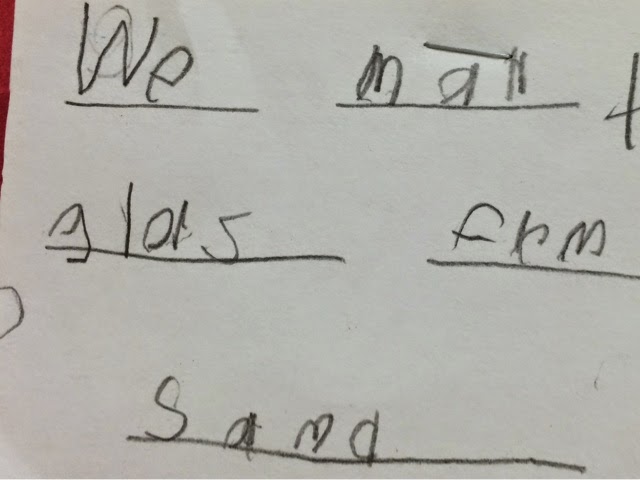 We
glas frm
sand